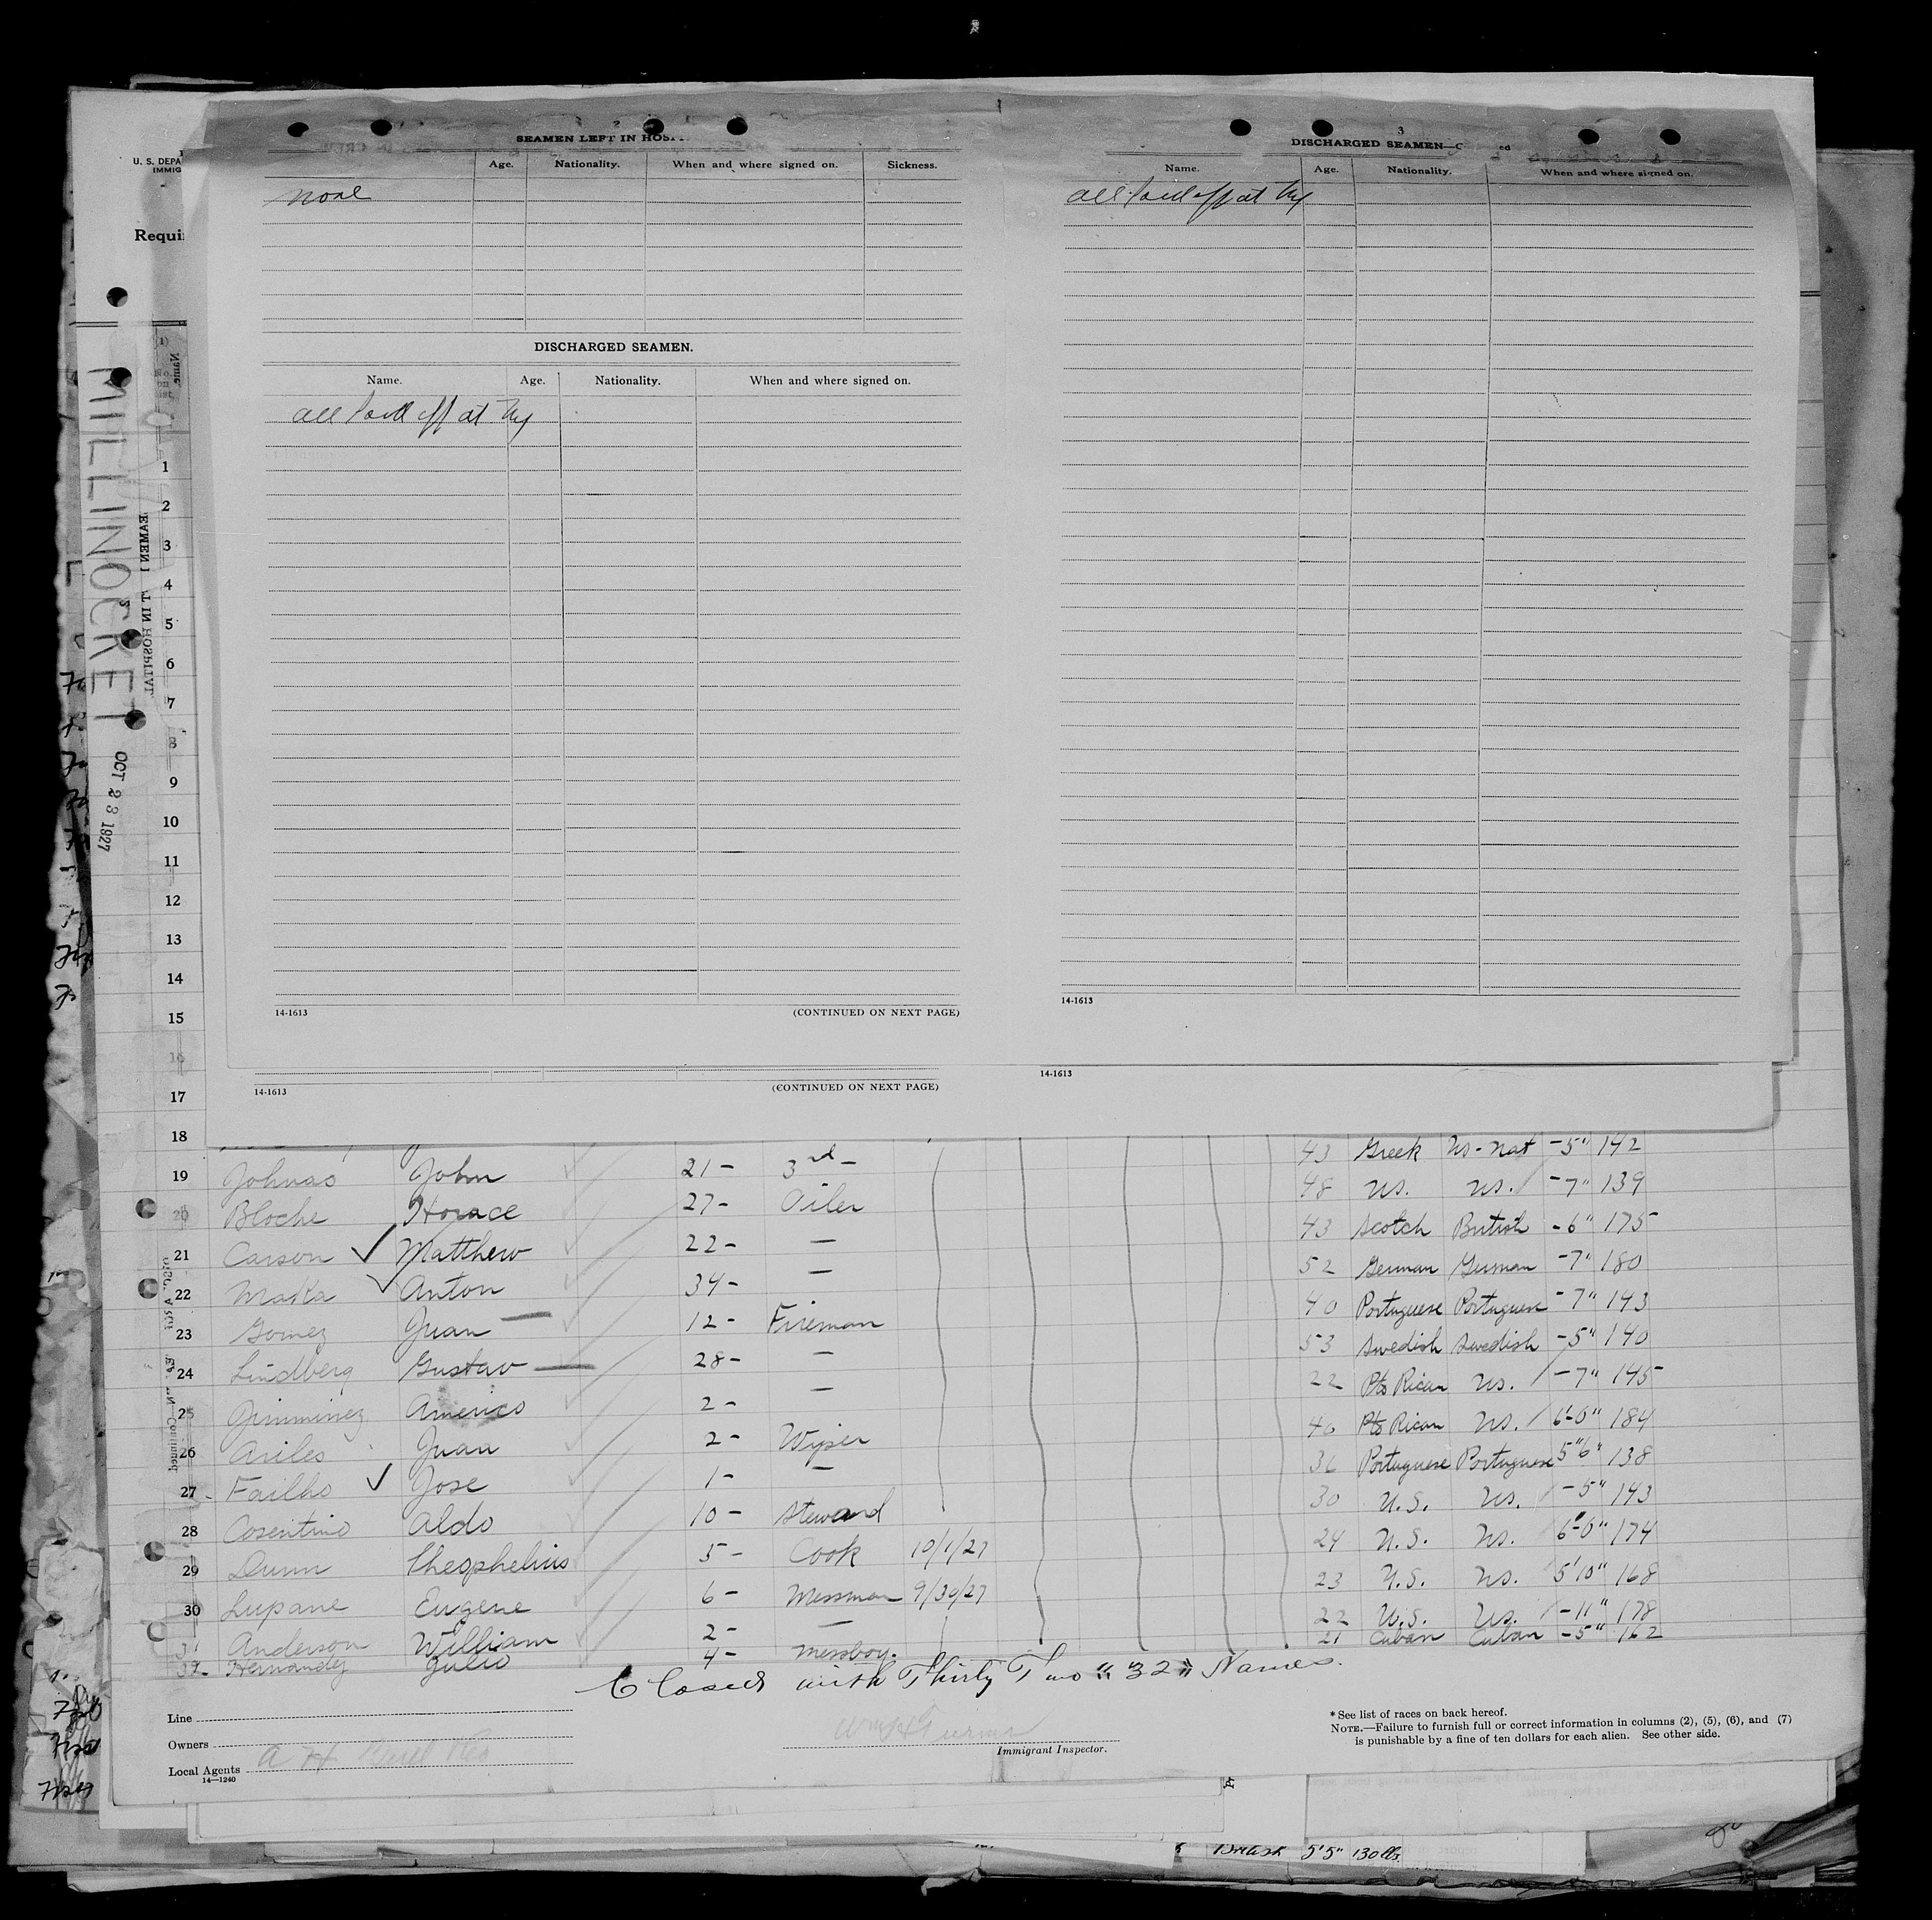 U. S. DEPA
IMMIG
Requi
MILLINOCKET
OCT 23 1927
SEAMEN LEFT IN HOS
Age. Nationality. When and where signed on. Sickness.
none
DISCHARGED SEAMEN.
Name. Age. Nationality. When and where signed on.
all paid off at Ny
14-1613 (CONTINUED ON NEXT PAGE)
3
DISCHARGED SEAMEN—C ed
Name. Age. Nationality. When and where signed on.
all paid off at Ny
14-1613
14-1613 (CONTINUED ON NEXT PAGE)
14-1613
1
2
3
4
5
6
7
8
9
10
11
12
13
14
15
16
17
18
43 Greek US-nat -5" 142
19 Johnas John 21- 3rd - 48 US. US. -7" 139
20 Bloche Horace 27- Oiler 43 Scotch British -6" 175
21 Carson ✓ Matthew 22- — 52 German German -7" 180
22 Maka ✓ Anton 34- — 40 Portuguese Portuguese -7" 143
23 Gomez Juan — 12- Fireman 53 Swedish Swedish -5" 140
24 Lindberg Gustav — 28- — 22 Pto Rican US. -7" 145
25 Jimminez Americo 2- — 40 Pto Rican US. 6'-0" 184
26 Ariles Juan 2- Wiper 36 Portuguese Portuguese 5"6" 138
27 Failho ✓ Jose 1- — 30 U.S. US. -5" 143
28 Cosentino Aldo 10- Steward 24 U.S. US. 6'-0" 174
29 Dunn Theophelius 5- Cook 10/1/27 23 U.S. US. 5'10" 168
30 Lupane Eugene 6- Messman 9/30/27 22 U.S. US. -11" 178
31 Anderson William 2- — 21 Cuban Cuban -5" 162
32 Hernandez Julio 4- Messboy.
Closed with Thirty Two "32" Names.
Line
Owners
Local Agents
14—1240
Immigrant Inspector.
* See list of races on back hereof.
NOTE.—Failure to furnish full or correct information in columns (2), (5), (6), and (7)
is punishable by a fine of ten dollars for each alien. See other side.
British 5'5" 130 lbs.